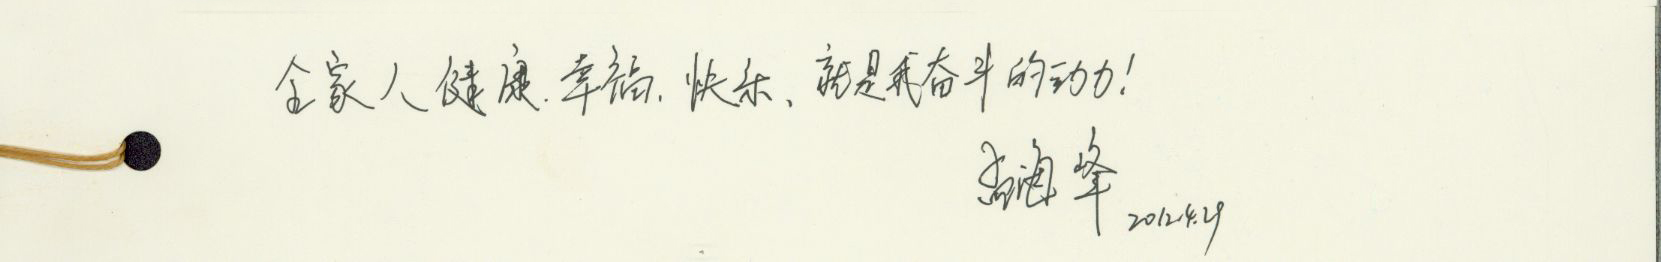 全家人健康、幸福、快乐、就是我奋斗的动力!
孟海峰
2012.4.29